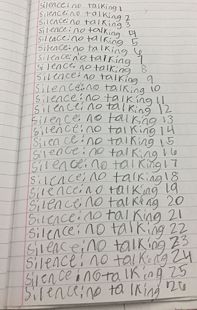 Silence: no talking 1
Silence: no talking 2
Silence: no talking 3
Silence: no talking 4
Silence: no talking 5
Silence: no talking 6
Silence: no talking 7
Silence: no talking 8
Silence: no talking 9
Silence: no talking 10
Silence: no talking 11
Silence: no talking 12
Silence: no talking 13
Silence: no talking 14
Silence: no talking 15
Silence: no talking 16
Silence: no talking 17
Silence: no talking 18
Silence: no talking 19
Silence: no talking 20
Silence: no talking 21
Silence: no talking 22
Silence: no talking 23
Silence: no talking 24
Silence: no talking 25
Silence: no talking 26